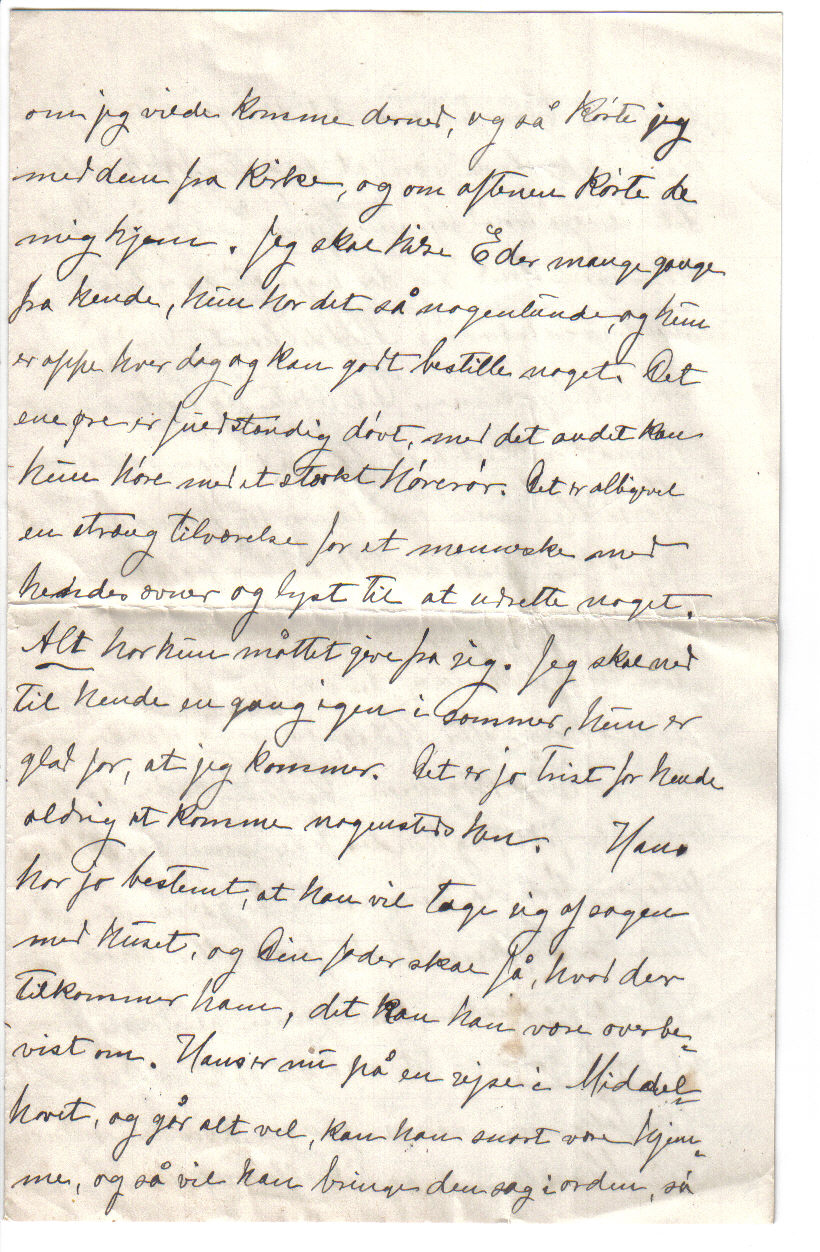 om jeg vilde komme derned, og så kørte jeg
med dem fra kirke, og om aftenen kørte de
mig hjem. Jeg skal hilse Eder mange gange
fra hende, hun har det så nogenlunde, og hun
er oppe hver dag og kan godt bestille noget. Det
ene øre er fuldstændig døvt, med det andet kan
hun høre med et stærkt hørerør. Det er alligevel
en stræng tilværelse for et menneske med
hendes evner og lyst til at udrette noget.
Alt har hun måttet give fra sig. Jeg skal ned
til hende en gang igen i sommer, hun er
glad for, at jeg kommer. Det er jo trist for hende
aldrig at komme nogensteds hen. Hans
har jo bestemt, at han vil tage sig af sagen
med huset, og Din fader skal få, hvad der
tilkommer ham, det kan han være overbe-
vist om. Hans er nu på en rejse i Middel-
havet, og går alt vel, kan han snart være hjem-
me, og så vil han bringe den sag i orden, så